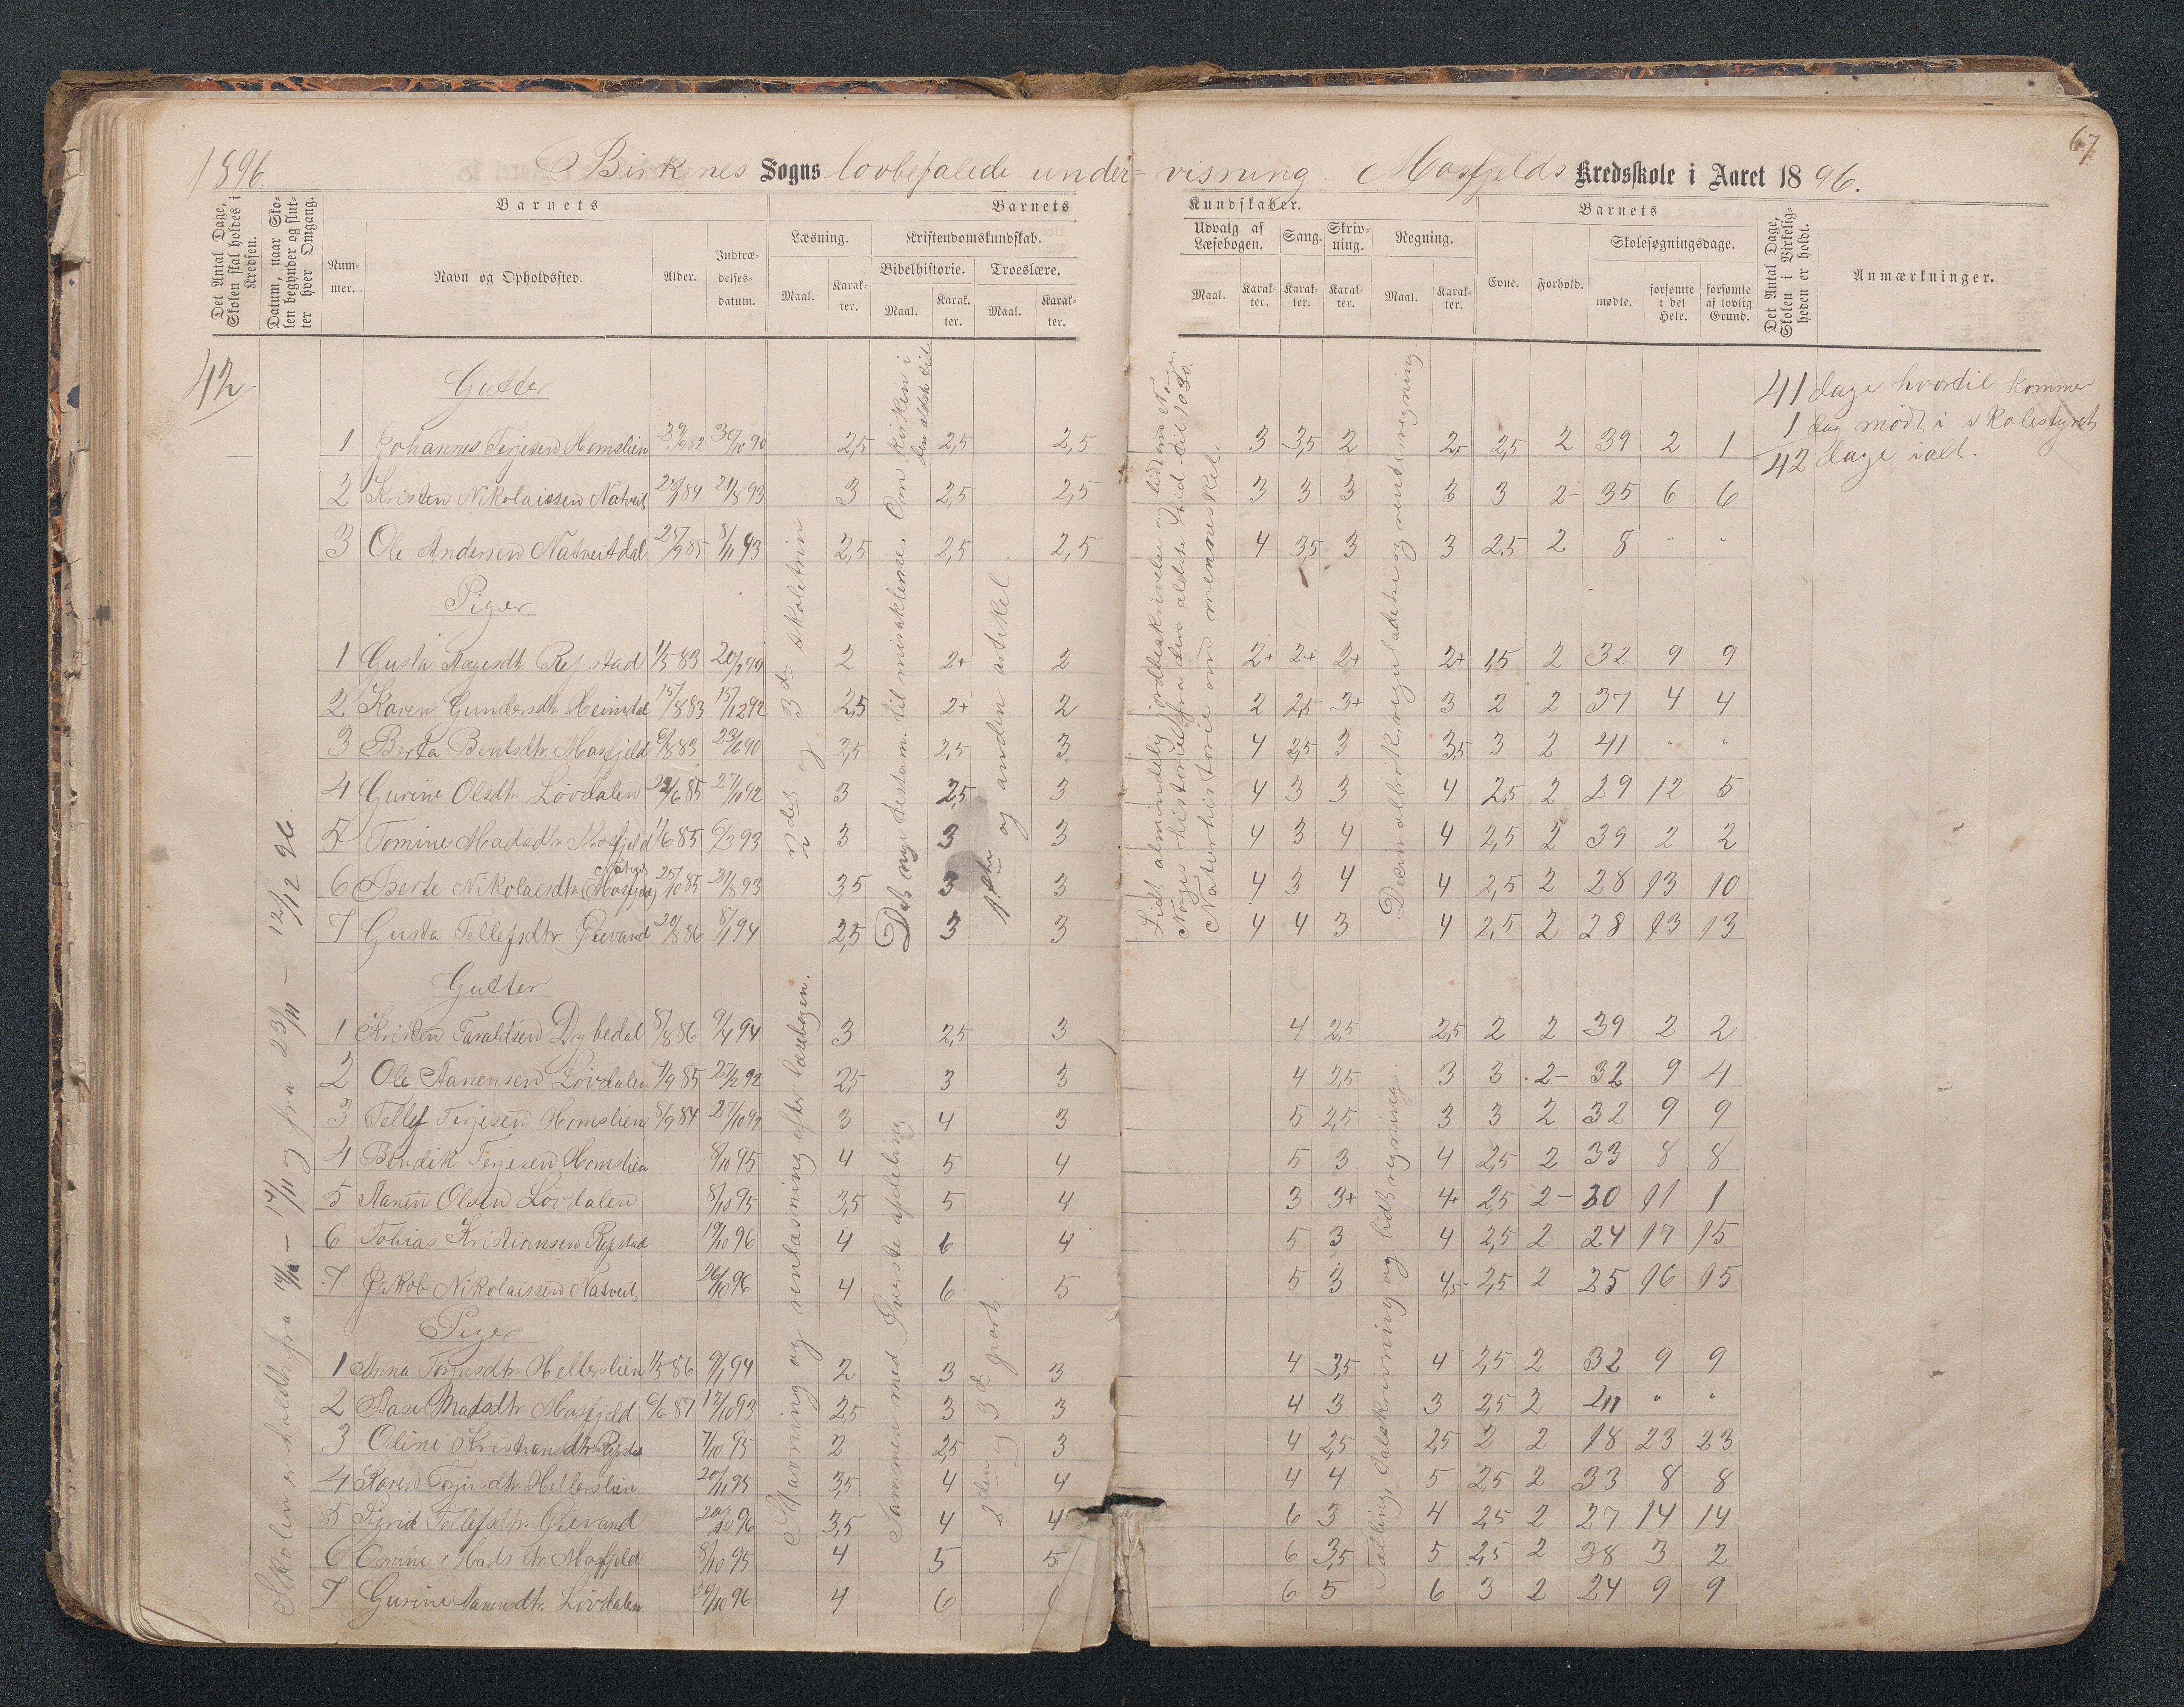 67
1896.
Birkenes Sogns lovbefalede under-visning. Mosfjelds Kredsskole i Aaret 1896.
Det Antal Dage, Skolen skal holdes i Kredsen.
Datum, naar Skolen begynder og slutter hver Omgang.
Barnets
Nummer.
Navn og Opholdssted.
Alder.
Indtrædelsesdatum.
Barnets Kundskaber.
Læsning.
Maal.
Karakter.
Kristendomskundskab.
Bibelhistorie.
Maal.
Karakter.
Troeslære.
Maal.
Karakter.
Udvalg af Læsebogen.
Maal.
Karakter.
Sang.
Karakter.
Skrivning.
Karakter.
Regning.
Maal.
Karakter.
Barnets
Evne.
Forhold.
Skolesøgningsdage.
mødte.
forsømte i det Hele.
forsømte af lovlig Grund.
Det Antal Dage, Skolen i Virkeligheden er holdt.
Anmærkninger.
42
Skolen er holdt fra 14/10 – 17/11 og fra 23/11 – 12/12 96.
41 dage hvortil kommer
1 dag mødt i skolestyret
42 dage ialt.
2det og 3die skoletrin
Det nye testam. til miraklerne. Om kirken i den ældste tid.
1ste og anden artikel
Lidt almindelig jordbeskrivelse og lidt om Norge.
Norges historie fra den ældste tid til 1030.
Naturhistorie om mennesket.
Decimalbrøk, reguladetri og rentesregning.
Gutter
1 Johannes Terjesen Homslien 2,5 2,5 2,5 3 3,5 2 2,5 2,5 2 39 2 1
2 Kristen Nikolaissen Natveit 23/1 84 21/8 93 3 2,5 2,5 3 3 3 3 3 2- 35 6 6
3 Ole Andersen Natveitdal 25/9 85 8/11 93 2,5 2,5 2,5 4 3,5 3 3 2,5 2 8 - -
Piger
1 Gusta Aagesdtr. Repstad 1/5 83 20/2 90 2 2+ 2 2+ 2+ 2+ 2+ 1,5 2 32 9 9
2 Karen Gundersdtr. Heimdal 15/8 83 15/12 92 2,5 2+ 2 2 2,5 3+ 3 2 2 37 4 4
3 Berta Bentsdtr. Mosfjeld 6/8 83 23/6 90 2,5 2,5 3 4 2,5 3 3,5 3 2 41 " "
4 Gurine Olsdtr. Løvdalen 22/6 85 27/10 92 3 2,5 3 4 3 3 4 2,5 2 29 12 5
5 Tomine Madsdtr. Mosfjeld 1/6 85 6/3 93 3 3 3 4 3 4 4 2,5 2 39 2 2
6 Berte Nikolaisdtr. Natveit (Mosfjeld) 25/10 85 21/8 93 3,5 3 3 4 3 4 4 2,5 2 28 13 10
7 Gusta Tellefsdtr. Øievand 20/8 86 8/1 94 2,5 3 3 4 4 3 4 2,5 2 28 13 13
Stavning og renlæsning efter læsebogen.
Sammen med øverste afdeling
2den og 3die part.
Tælling, talskrivning og lidt regning.
Gutter
1 Kristen Taraldsen Dybedal 8/8 86 9/4 94 3 2,5 3 4 2,5 2,5 2 2 39 2 2
2 Ole Aanensen Løvdalen 7/9 85 27/2 92 2,5 3 3 4 2,5 3 3 2- 32 9 4
3 Tellef Terjesen Homslien 8/9 84 27/10 92 3 4 3 5 2,5 3 3 2 32 9 9
4 Bendik Terjesen Homslien 8/10 95 4 5 4 5 3 4 2,5 2 33 8 8
5 Aanen Olsen Løvdalen 8/10 95 3,5 5 4 3 3+ 4+ 2,5 2- 30 11 1
6 Tobias Kristiansen Repstad 19/10 96 4 6 4 5 3 4 2,5 2 24 17 15
7 Jakob Nikolaissen Natveit 26/10 96 4 6 5 5 3 4,5 2,5 2 25 16 15
Piger
1 Anna Torjusdtr. Hellerslien 1/5 86 9/1 94 2 3 3 4 3,5 4 2,5 2 32 9 9
2 Aase Madsdtr. Mosfjeld 6/6 87 12/10 93 2,5 3 3 4 3 3 2,5 2 41 " "
3 Oline Kristiansdtr. Repstad 7/10 95 2 2,5 3 4 2,5 2,5 2 2 18 23 23
4 Karen Torjusdtr. Hellerslien 20/11 95 3,5 4 4 4 4 5 2,5 2 33 8 8
5 Sigrid Tellefsdtr. Øievand 20/10 96 3,5 4 4 6 3 4 2,5 2 27 14 14
6 Omine Madsdtr. Mosfjeld 8/10 95 4 5 5 6 3,5 5 2,5 2 38 3 2
7 Gurine Aanensdtr. Løvdalen 20/10 96 4 6 6 5 6 3 2 24 9 9